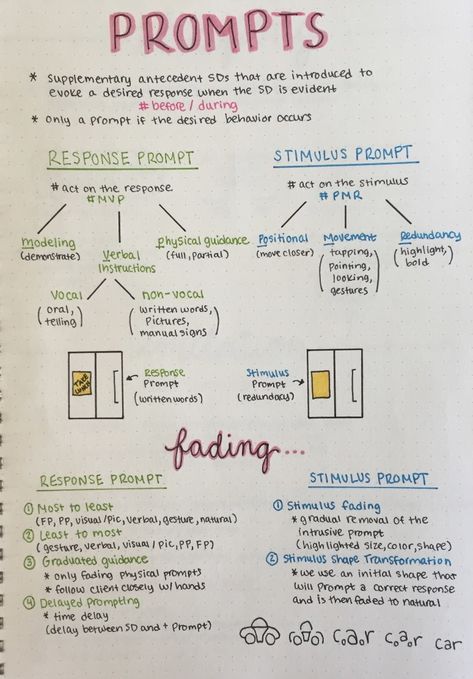 PROMPTS
* Supplementary antecedent SDs that are introduced to
evoke a desired response when the SD is evident
# before / during
* Only a prompt if the desired behavior occurs
RESPONSE PROMPT
# act on the response
#MVP
Modeling
(demonstrate)
Verbal
Instructions
Physical guidance
(full, partial)
Vocal
(oral,
telling)
non-vocal
(written words,
Pictures,
manual signs)
STIMULUS PROMPT
# act on the stimulus
# PMR
Positional
(move closer)
Movement
(tapping,
pointing,
looking,
gestures)
Redundancy
(highlight,
bold)
TAKE
Response
Prompt
(written words)
Stimulus
Prompt
(redundacy)
fading...
RESPONSE PROMPT
① Most to least
(FP, PP, visual/pic, verbal, gesture, natural)
② Least to most
(gesture, verbal, visual/pic, PP, FP)
③ Graduated guidance
* only fading physical prompts
* follow client closely w/ hands
④ Delayed Prompting
* time delay
(delay between SD and + prompt)
STIMULUS PROMPT
① Stimulus fading
* gradual removal of the
intrusive prompt
(highlighted size, color, shape)
② Stimulus Shape Transformation
* we use an initial shape that
will prompt a correct response
and is then faded to natural
car car car